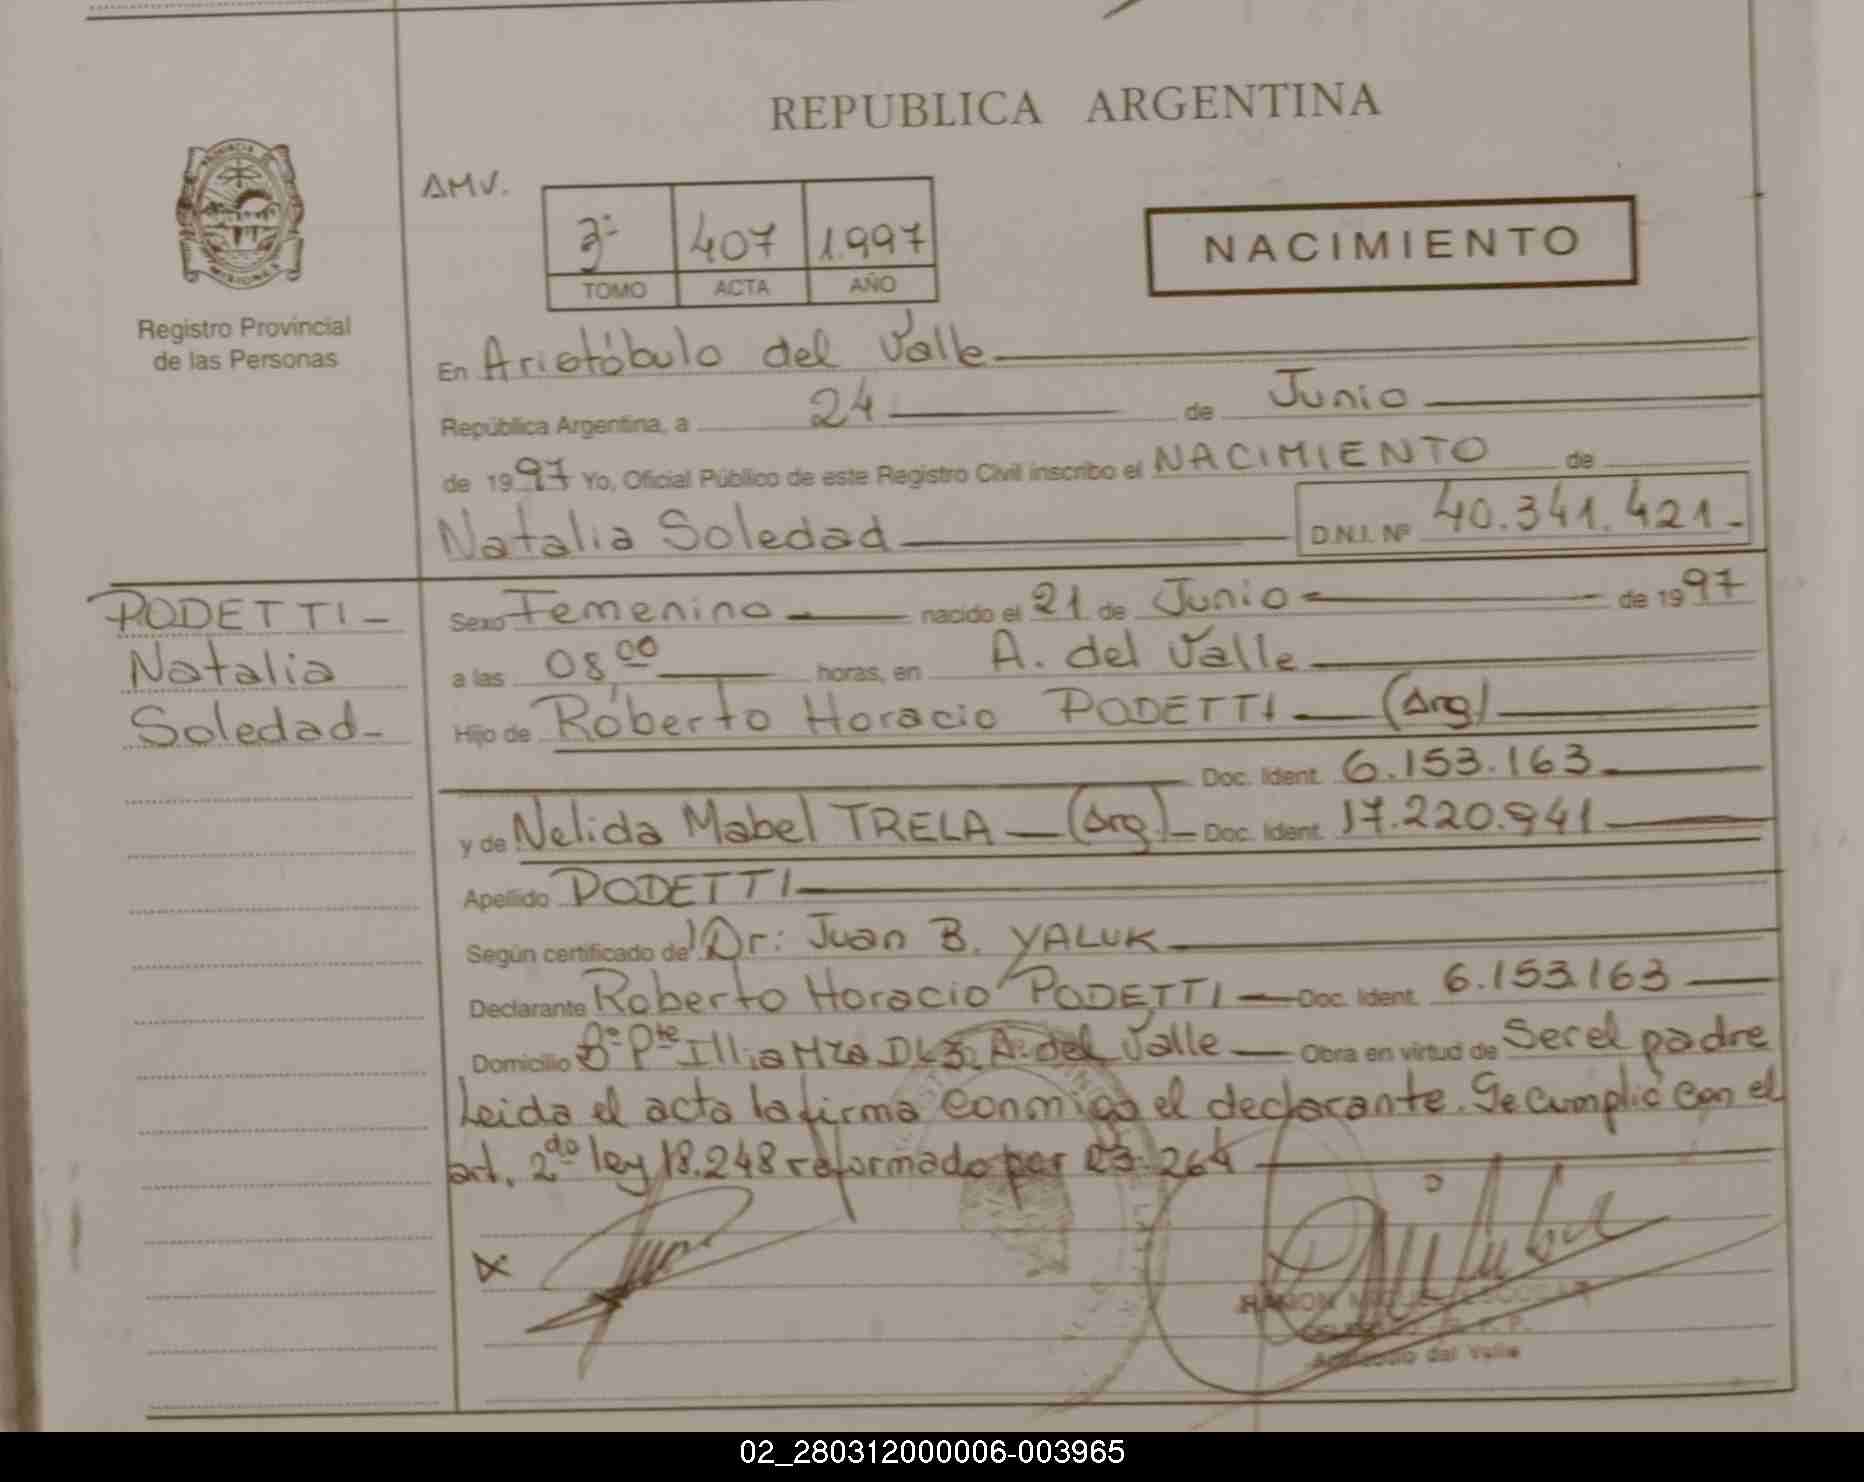 REPUBLICA ARGENTINA
PROVINCIA DE
MISIONES
Registro Provincial
de las Personas
AMV.
407 1.997
TOMO ACTA AÑO
NACIMIENTO
En Aristóbulo del Valle
República Argentina, a 24 de Junio
de 1997 Yo, Oficial Público de este Registro Civil inscribo el NACIMIENTO de
Natalia Soledad D.N.I. Nº 40.341.421.-
PODETTI -
Natalia
Soledad -
Sexo Femenino nacido el 21 de Junio de 1997
a las 08,00 horas, en A. del Valle
Hijo de Roberto Horacio PODETTI (Arg)
Doc. Ident. 6.153.163
y de Nelida Mabel TRELA (Arg.) Doc. Ident. 17.220.941
Apellido PODETTI
Según certificado de Dr: Juan B. YALUK
Declarante Roberto Horacio PODETTI Doc. Ident. 6.153.163
Domicilio Bº Pte Illia Mza D A. del Valle Obra en virtud de Ser el padre
Leida el acta la firma conmigo el declarante. Se cumplió con el
art. 2do ley 18.248 reformado por 23.264
RAMON
del Valle
02_280312000006-003965